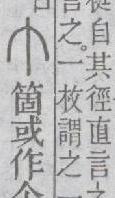 自其徑直言之
之。一枚謂之一
个箇或作